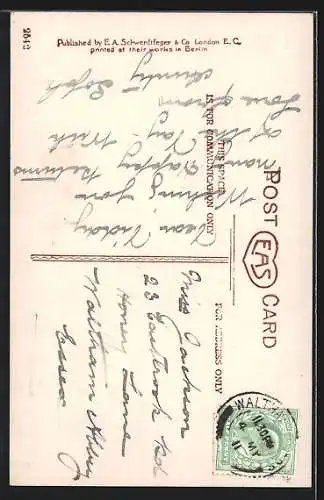 2643
Published by E. A. Schwerdtfeger & Co London E. C.
printed at their works in Berlin
POST CARD
EAS
THIS SPACE
IS FOR COMMUNICATION ONLY
FOR ADDRESS ONLY
Dear
Wishing you
many Happy Returns
of the Day. With
Love from
Aunty
Miss Jackson
23 Eastbrook Rd
Honey Lane
Waltham Abbey
Essex
WALTHAM
4 MY
11